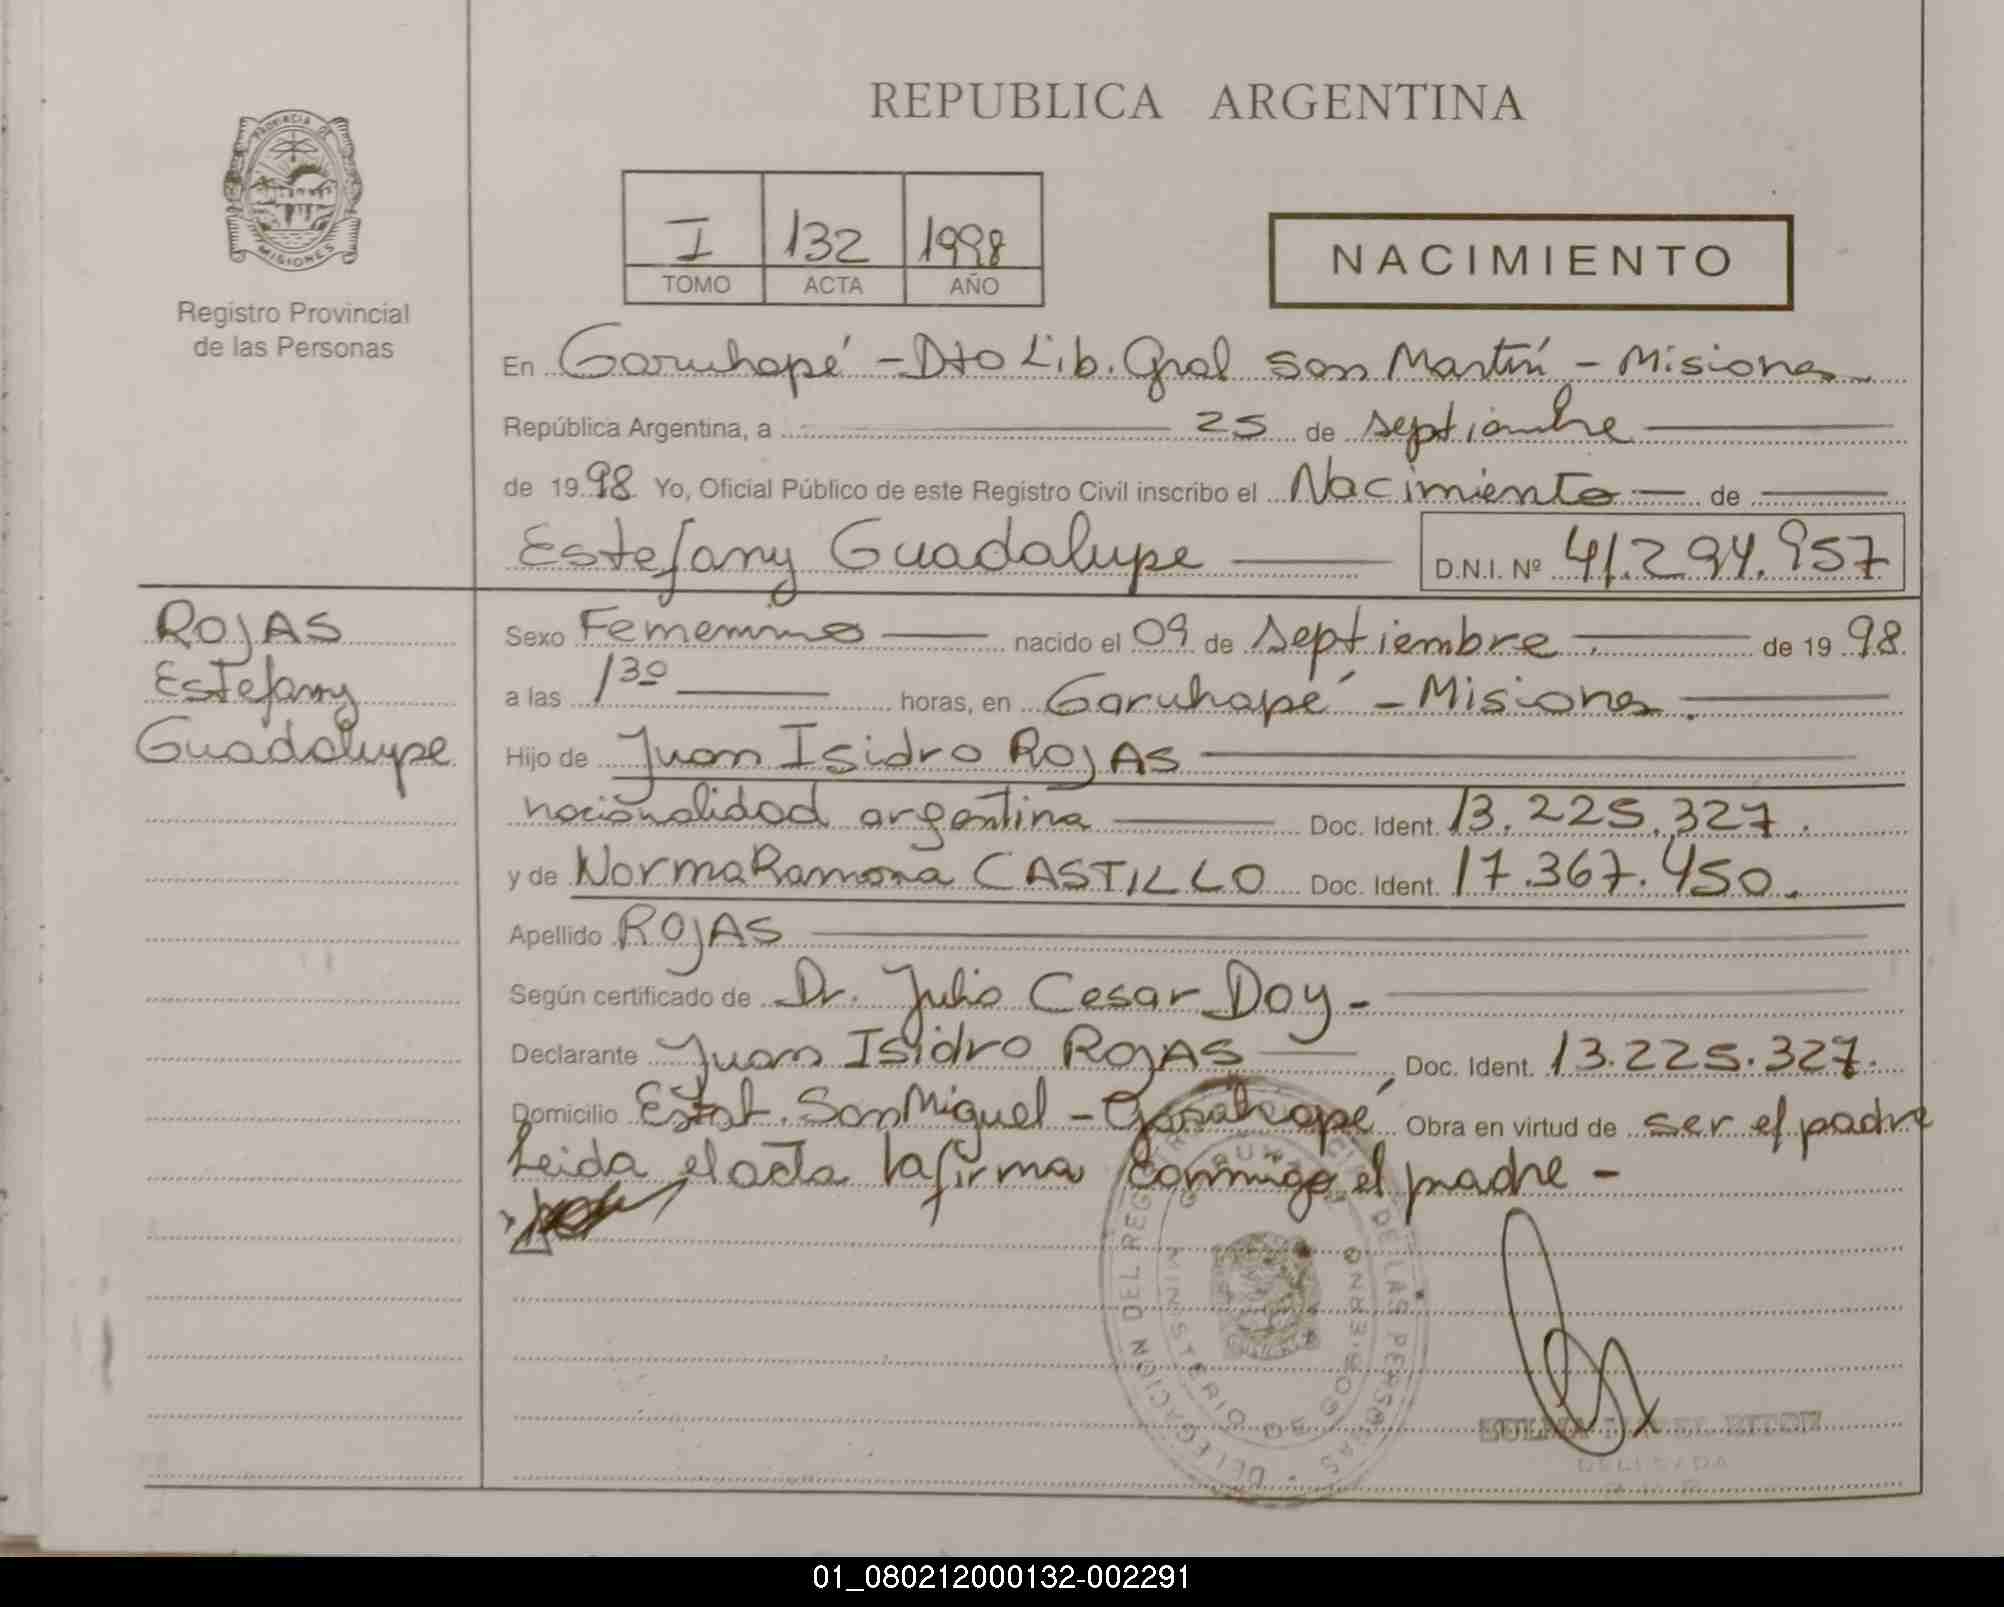 REPUBLICA ARGENTINA
PROVINCIA DE
MISIONES
Registro Provincial
de las Personas
I 132 1998
TOMO ACTA AÑO
NACIMIENTO
En Garuhapé - Dto Lib. Gral San Martín - Misiones
República Argentina, a 25 de septiembre
de 1998 Yo, Oficial Público de este Registro Civil inscribo el Nacimiento de
Estefany Guadalupe D.N.I. Nº 41.294.957
ROJAS
Estefany
Guadalupe
Sexo Femenino nacido el 09 de septiembre de 1998
a las 13º horas, en Garuhapé - Misiones.
Hijo de Juan Isidro ROJAS
nacionalidad argentina Doc. Ident. 13.225.327.
y de Norma Ramona CASTILLO Doc. Ident. 17.367.450.
Apellido ROJAS
Según certificado de Dr. Julio Cesar Doy -
Declarante Juan Isidro ROJAS Doc. Ident. 13.225.327.
Domicilio Estab. San Miguel - Garuhapé Obra en virtud de ser el padre
Leida el acta la firma conmigo el padre -
DELEGACION DEL REGISTRO DE LAS PERSONAS
MINISTERIO DE GOBIERNO
DELEGADA
01_080212000132-002291